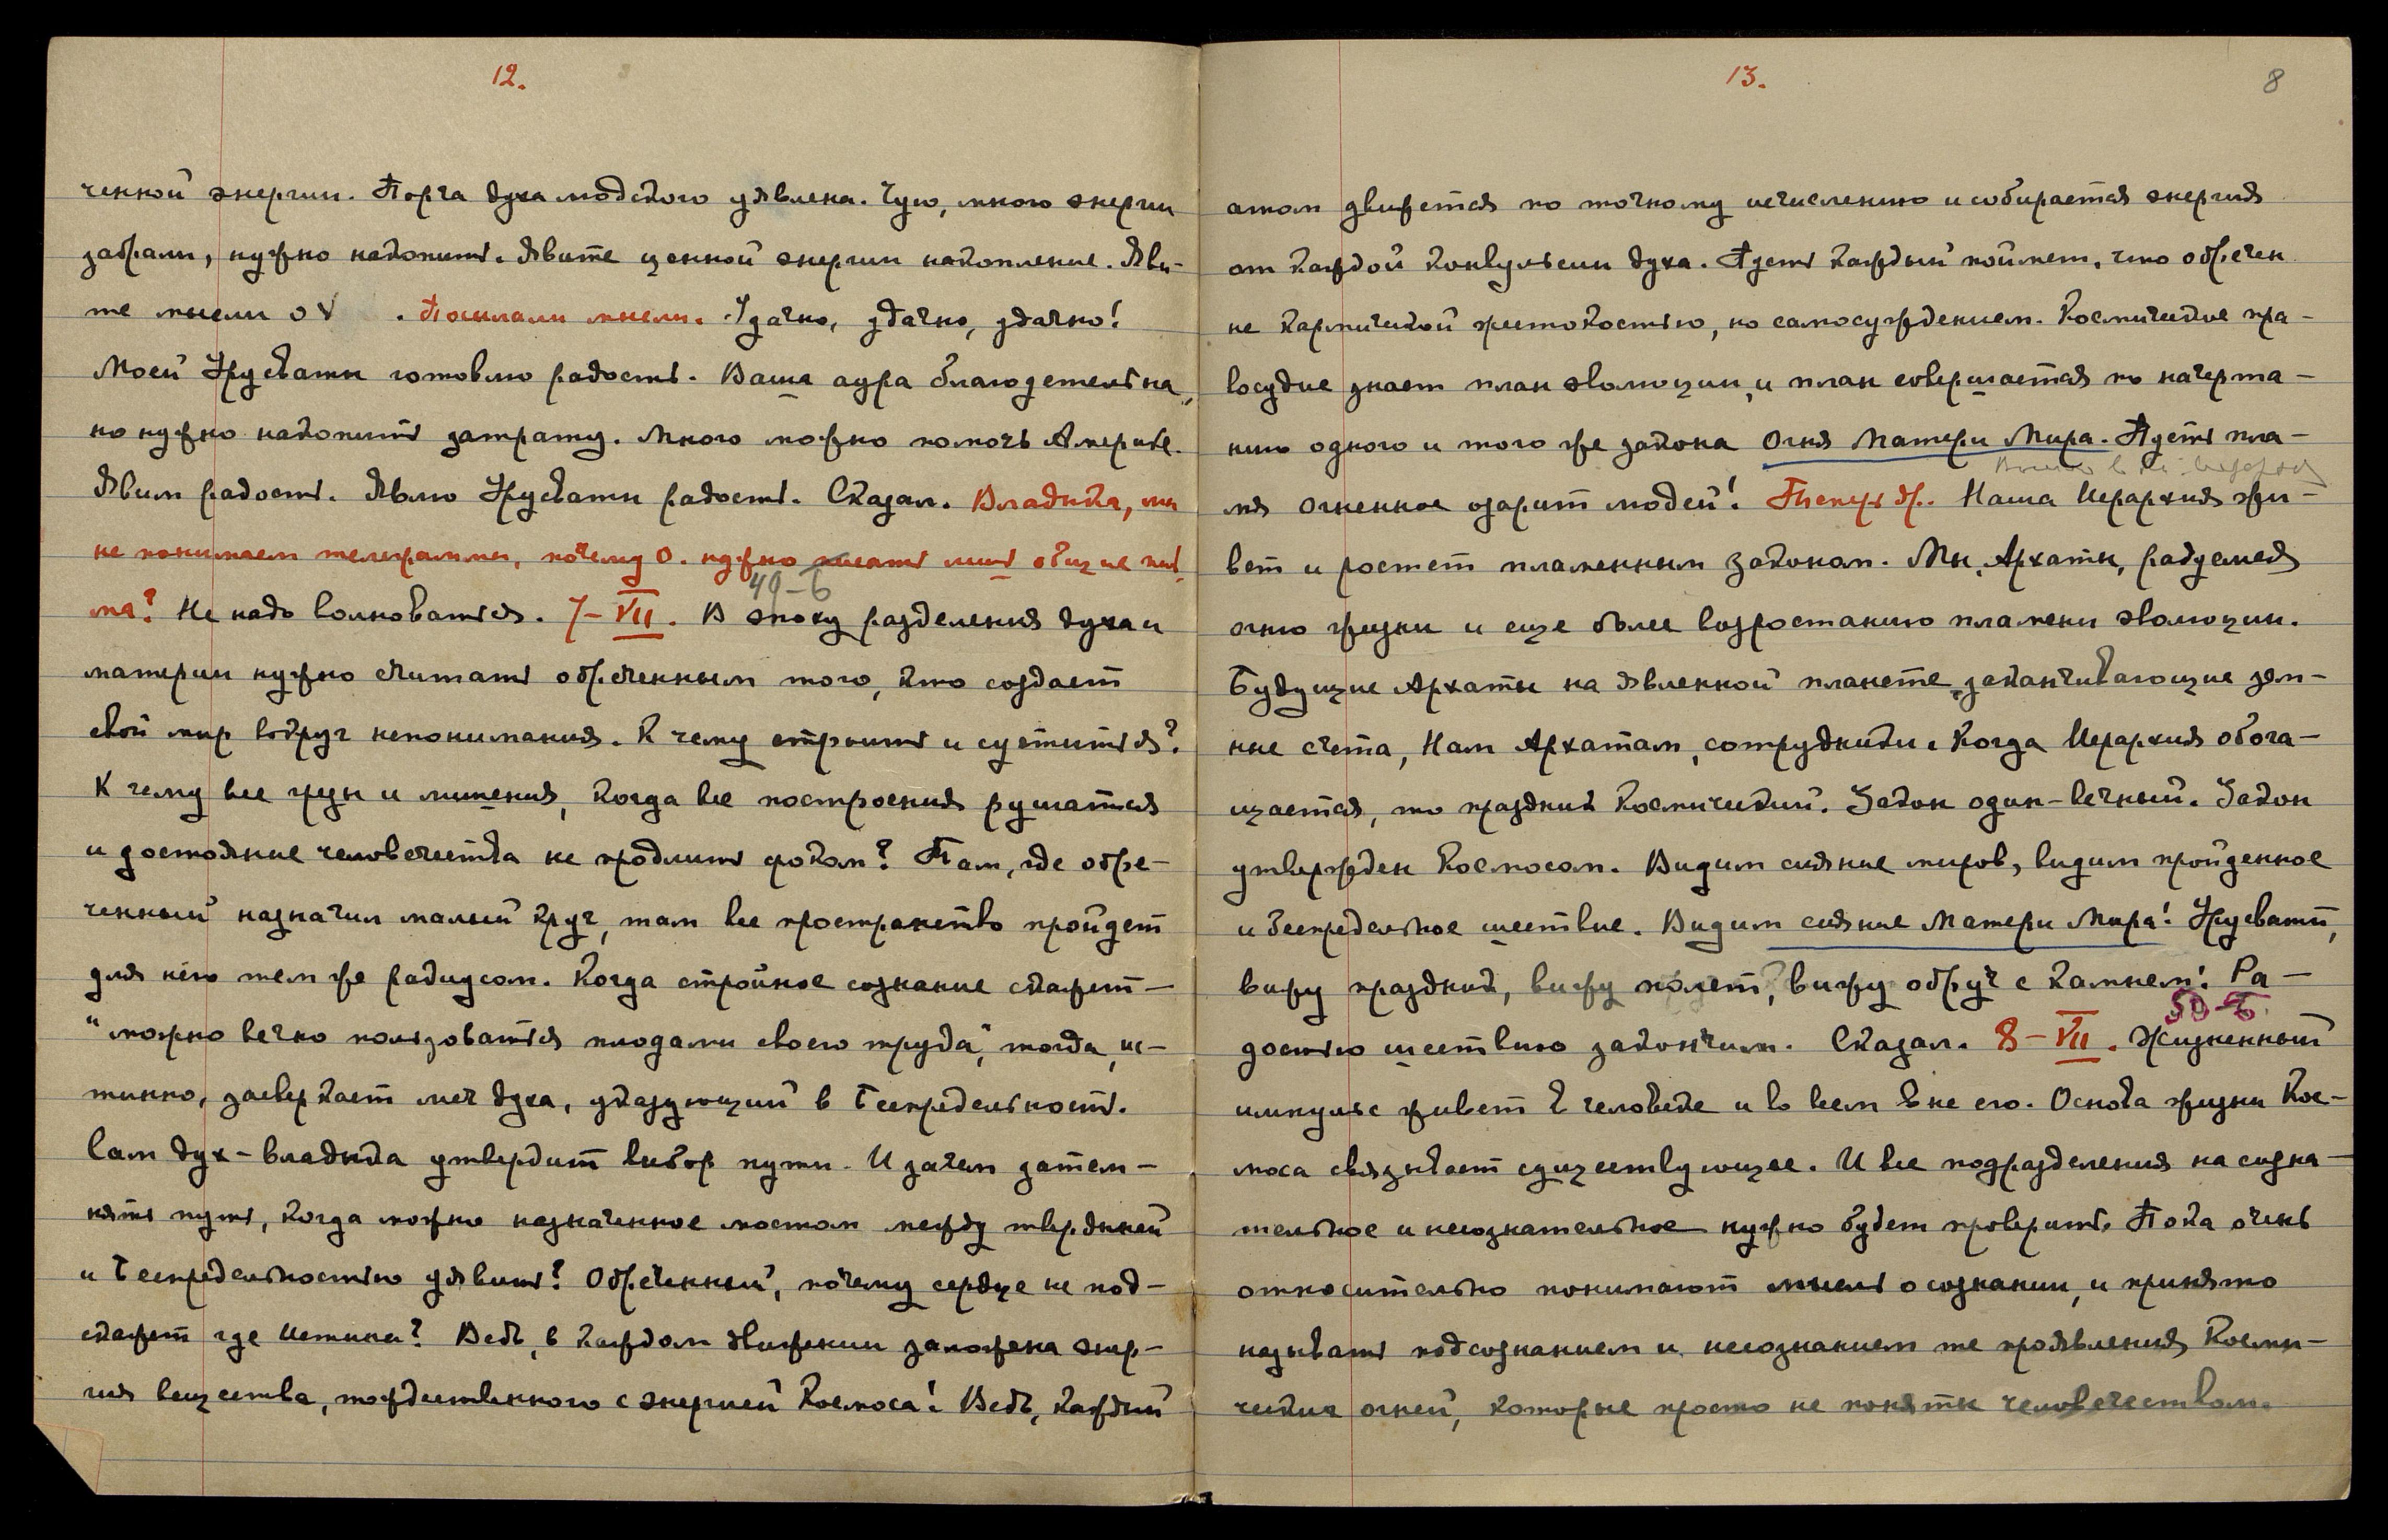 12.
ченной энергии. Порча духа людского уявлена. Чую, много энергии
забрали, нужно накопить. Явите ценной энергии накопление. Яви-
те мысли о V . Посылали мысли. Удачно, удачно, удачно!
Моей Урусвати готовлю радость. Ваша аура благодетельна,
но нужно накопить затрату. Много можно помочь Америке.
Явим радость. Явлю Урусвати радость. Сказал. Владыка, мы
не понимаем телеграммы, почему О. нужно писать лишь общие
ма? Не надо волноваться. 7-VII. В эпоху разделения духа и
49-Б
материи нужно считать обреченным того, кто создает
свой мир вокруг непонимания. К чему строить и суетиться?
К чему все узы и лишения, когда все построения рушатся
и достояние человечества не продлить роком? Там, где обре-
ченный назначил малый круг, там все пространство пройдет
для него тем же радиусом. Когда стройное сознание скажет-
"можно вечно пользоваться плодами своего труда", тогда, ис-
тинно, засверкает меч духа, указующий в Беспредельность.
Сам дух-владыка утвердит выбор пути. И зачем затем-
нять путь, когда можно назначенное мостом между твердыней
и Беспредельностью уявить? Обреченный, почему сердце не под-
скажет где Истина? Ведь, в каждом движении заложена энер-
гия вещества, тождественного с энергией Космоса! Ведь, каждый
13.
8
атом движется по точному исчислению и собирается энергия
от каждой конвульсии духа. Пусть каждый поймет, что обречен
не кармической жестокостью, но самосуждением. Космическое пра-
восудие знает план эволюции, и план совершается по начерта-
нию одного и того же закона Огня Матери Мира. Пусть пла-
мя огненное озарит людей! Теперь др. Наша Иерархия жи-
вет и ростет пламенным законом. Мы, Архаты, радуемся
огню жизни и еще более возростанию пламени эволюции.
Будущие Архаты на явленной планете, заканчивающие зем-
ные счета, Нам Архатам, сотрудники. Когда Иерархия обога-
щается, то праздник Космический. Закон один-вечный. Закон
утвержден Космосом. Видим сияние миров, видим пройденное
и беспредельное шествие. Видим сияние Матери Мира! Урусвати,
вижу праздник, вижу полет, вижу обруч с камнем! Ра-
достью шествию закончим. Сказал. 8-VII. Жизненный
50-Б
импульс живет в человеке и во всем вне его. Основа жизни Кос-
моса связывает существующее. И все подразделения на созна-
тельное и несознательное нужно будет проверить. Пока очень
относительно понимают мысль о сознании, и принято
называть подсознанием и несознанием те проявления Косми-
ческих огней, которые просто не поняты человечеством.